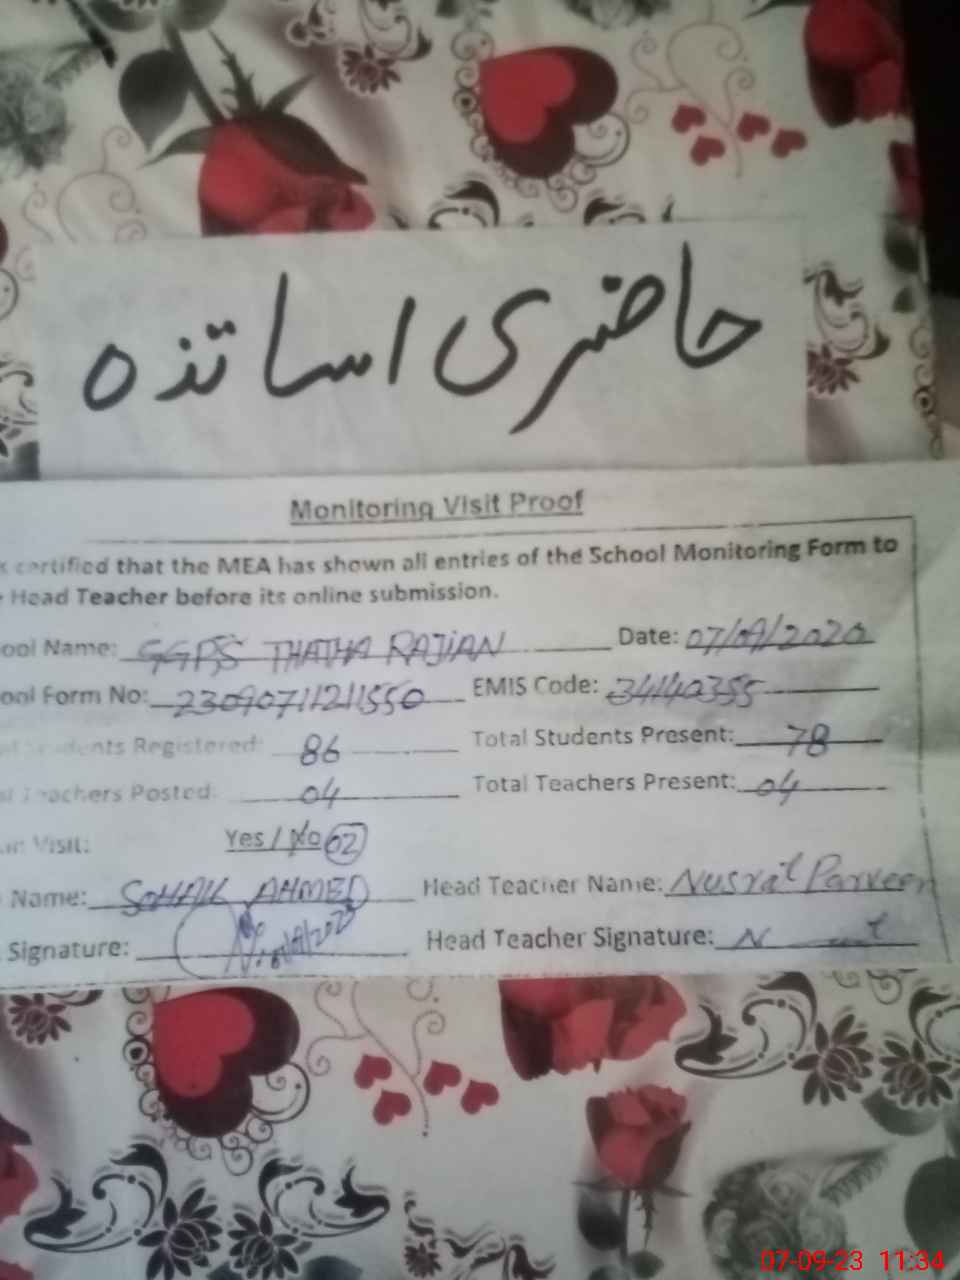 حاضری اساتذہ
Monitoring Visit Proof
certified that the MEA has shown all entries of the School Monitoring Form to
Head Teacher before its online submission.
ool Name: GGPS THATHA RAJIAN Date: 07/09/2020
ool Form No: 23090711211550 EMIS Code: 34140355
Students Registered: 86 Total Students Present: 78
Teachers Posted: 04 Total Teachers Present: 04
Visit: Yes / No 02
Name: SOHAIL AHMED Head Teacher Name: Nusrat Parveen
Signature: Head Teacher Signature:
07-09-23 11:34